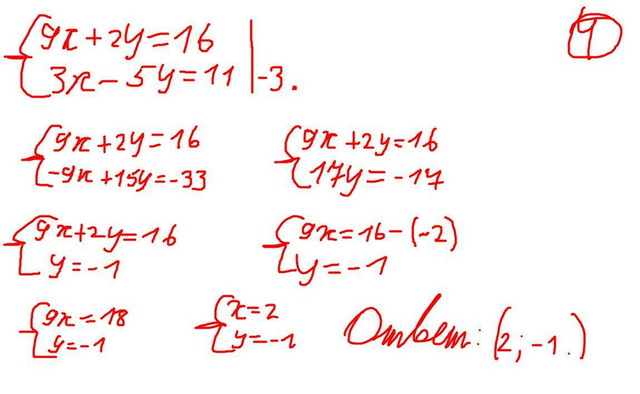 4
{9x+2y=16
{3x-5y=11 |-3.
{9x+2y=16
{-9x+15y=-33
{9x+2y=16
{17y=-17
{9x+2y=16
{y=-1
{9x=16-(-2)
{y=-1
{9x=18
{y=-1
{x=2
{y=-1
Ответ: (2; -1.)